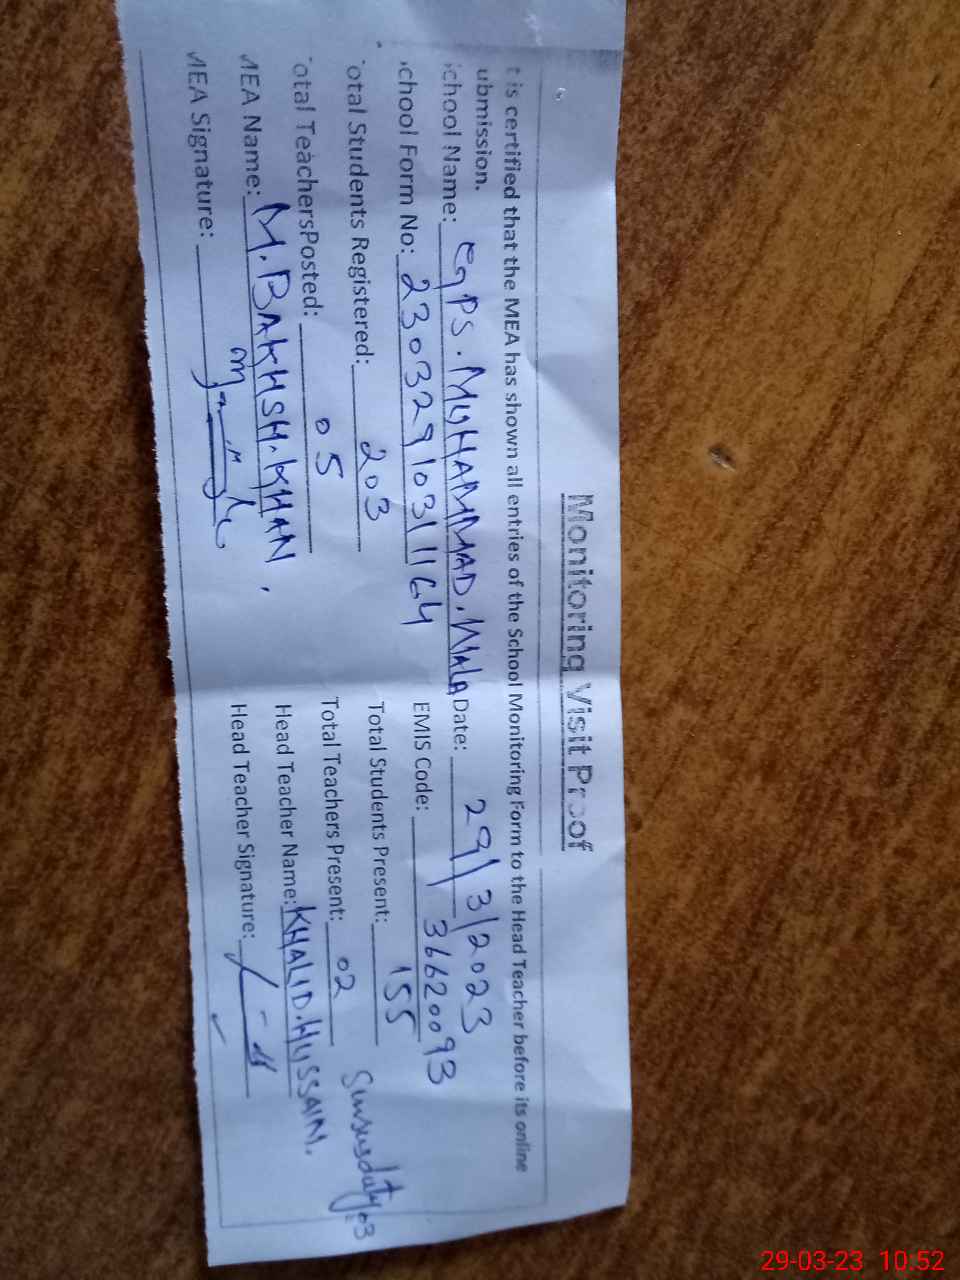 Monitoring Visit Proof
t is certified that the MEA has shown all entries of the School Monitoring Form to the Head Teacher before its online
ubmission.
chool Name: GPS. MUHAMMAD. WALA Date: 29/3/2023
chool Form No: 2303291031164 EMIS Code: 36620093
otal Students Registered: 203 Total Students Present: 155
otal TeachersPosted: 05 Total Teachers Present: 02 Sensusduty 03
MEA Name: M. BAKHSH. KHAN. Head Teacher Name: KHALID. HUSSAIN.
MEA Signature: Head Teacher Signature:
29-03-23 10:52